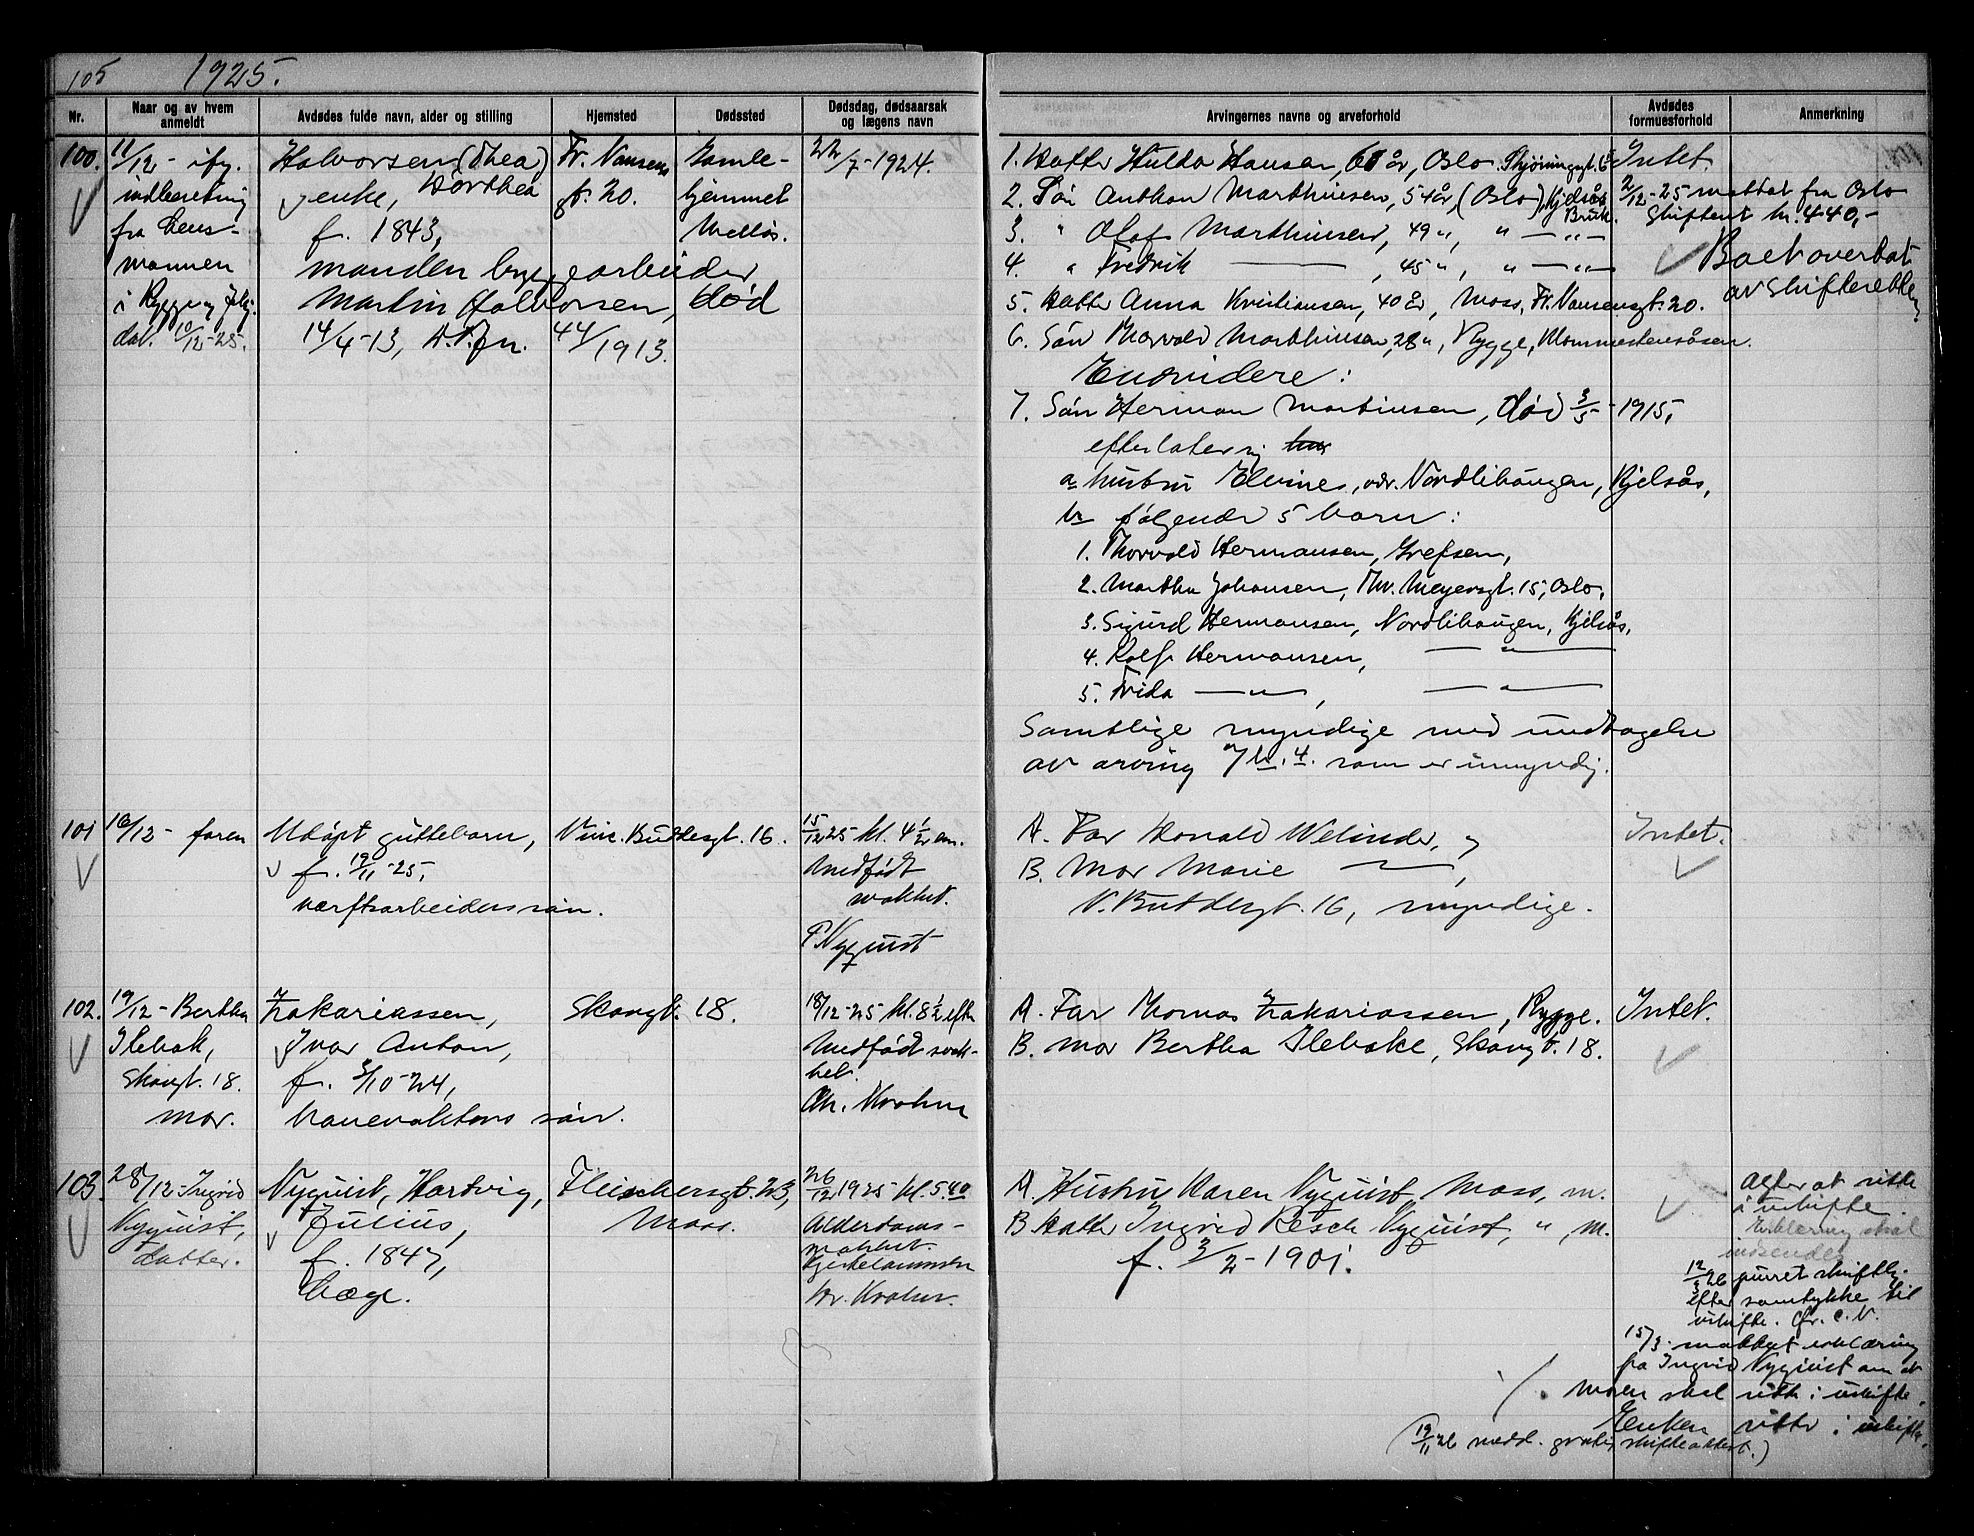 105 1925.
Nr.
Naar og av hvem anmeldt
Avdødes fulde navn, alder og stilling
Hjemsted
Dødssted
Dødsdag, dødsaarsak og lægens navn
Arvingernes navne og arveforhold
Avdødes formuesforhold
Anmerkning
100.
11/12 - ifg.
indberetning
fra Lens-
mannen
i Rygge
dat. 10/12-25.
Halvorsen (Thea)
Dorthea
enke,
f. 1843,
manden byggearbeider
Martin Halvorsen, død
14/4-13, D.P. fn. 44/1913.
Fr. Nansens
gt. 20.
Gamle-
hjemmet
Melløs.
22/7-1924.
1. Datter Hulda Hansen, 61 år, Oslo
2. Søn Anthon Marthinsen, 54 år, (Oslo), Kjelsås
Bruk.
3. " Olaf Marthinsen, 49 ", " — " —
4. " Fredrik ———, 45 ", " — " —
5. Datter Anna Kristiansen, 40 år, Moss, Fr. Nansensgt. 20.
6. Søn Thorvald Marthinsen, 28 ", Rygge,
Endvidere:
7. Søn Herman Martinsen, død 3/5-1915,
efterlater sig
a hustru Elvine, adr. Nordlihaugen, Kjelsås,
b følgende 5 barn:
1. Thorvald Hermansen, Grefsen,
2. Martha Johansen, Thv. Meyersgt. 15, Oslo,
3. Sigurd Hermansen, Nordlihaugen, Kjelsås,
4. Rolf Hermansen, — " —
5. Frida — " —, — " —
Samtlige myndige med undtagelse
av arving 7 b. 4. som er umyndig.
Intet.
2/12-25 mottat fra Oslo
skifteret kr. 440,-
Boet overtat
av skifteretten
101
16/12 - faren
Udøpt guttebarn,
f. 19/11-25,
verftsarbeiderssøn.
Vinc. Buddesgt. 16.
15/12 25 kl. 4 1/2 em.
Medfødt
svakhet.
P. Nyquist
A. Far Harald Welinder,
B. Mor Marie —
V. Buddesgt. 16, myndige.
Intet.
102.
19/12 - Bertha
Ilebak,
Skovgt. 18.
mor.
Zakariassen,
Ivar Anton,
f. 3/10-24,
banevokters søn.
Skovgt. 18.
18/12-25 kl. 8 1/2 efm
Medfødt svak-
het.
Chr. Krohn
A. Far Thomas Zakariassen, Rygge.
B. Mor Bertha Ilebakke, Skovgt. 18.
Intet.
103.
28/12-Ingrid
Nyquist,
datter.
Nyquist, Hartvig,
Julius,
f. 1847,
læge.
Fleischersgt. 23,
Moss.
26/12 1925 kl. 5.40
Alderdoms-
svakhet.
Hjertelammelse
Kr. Krohn.
A. Hustru Karen Nyquist, Moss, m.
B. Datter Ingrid Resch Nyquist, ", m.
f. 3/2-1901.
Agter at sitte
i uskifte.
Erklæring skal
indsendes
12/3 26 purret skriftlig
efter samtykke til
uskifte. Cfr. C.V.
15/3 mottat erklæring
fra Ingrid Nyquist om at
moren skal sitte i uskifte.
Enken sitter i uskifte.
(19/11 26 medd. gratis skifteattest.)